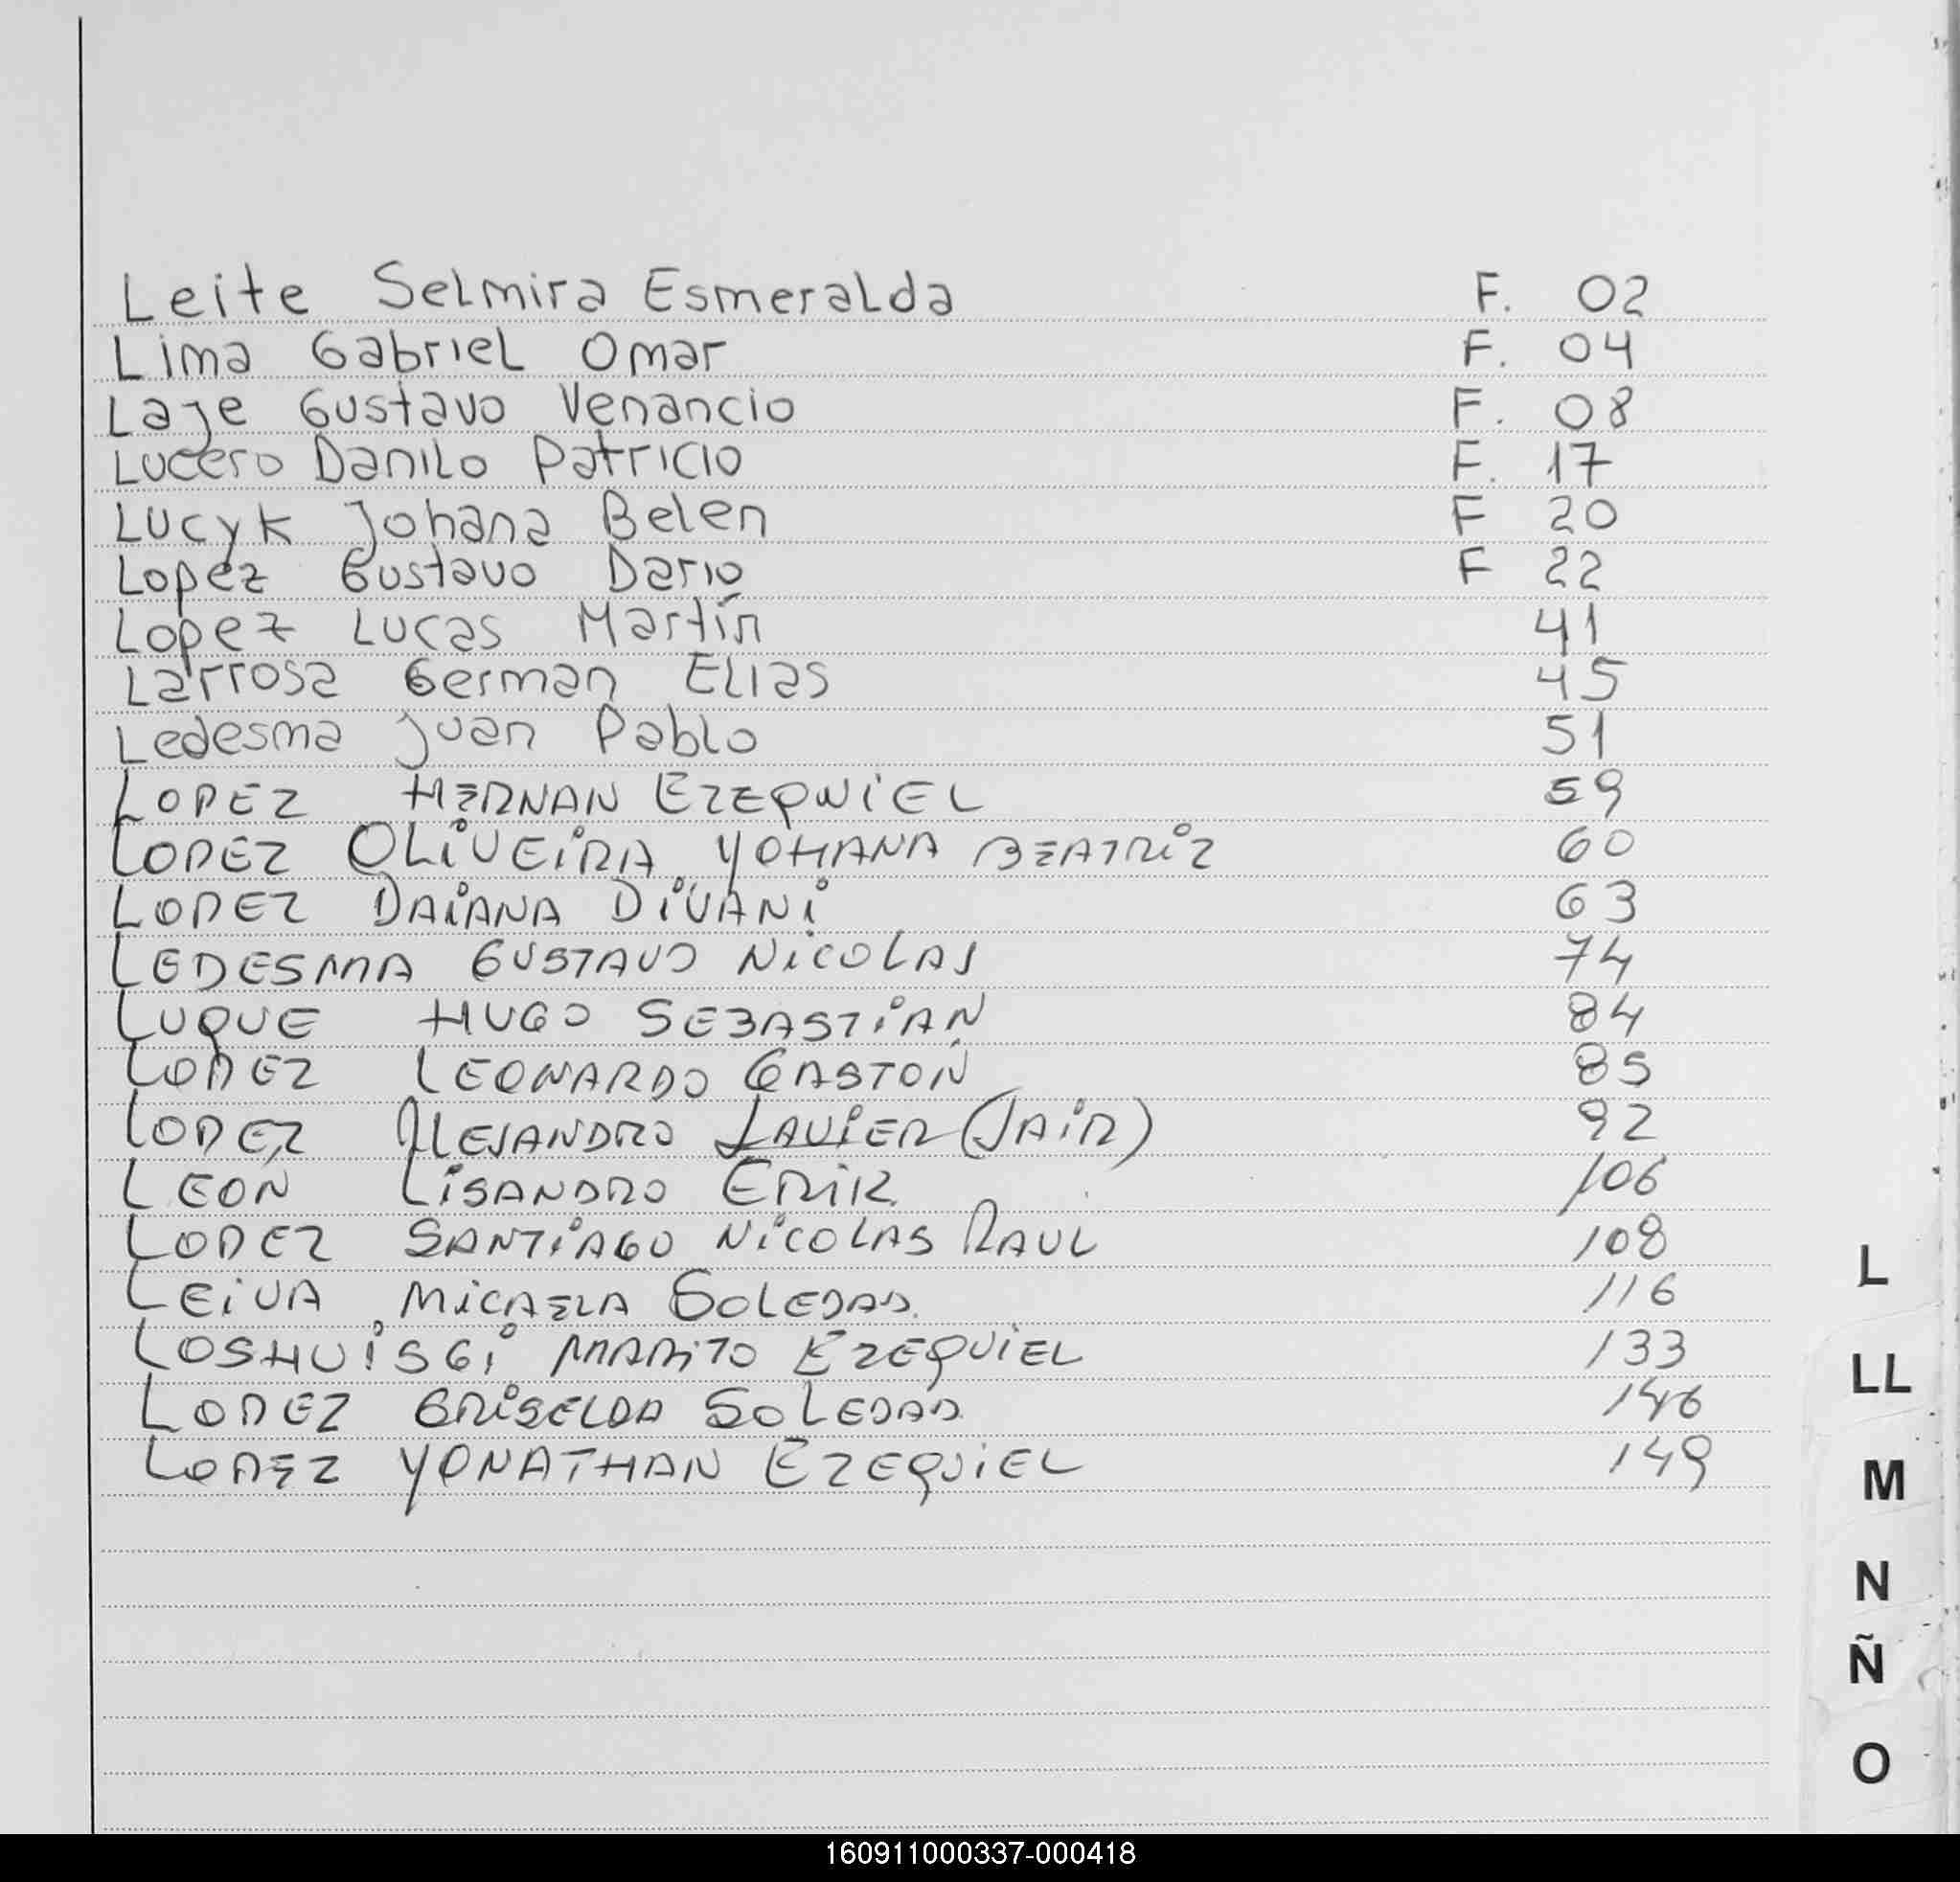 Leite Selmira Esmeralda F. 02
Lima Gabriel Omar F. 04
Laje Gustavo Venancio F. 08
Lucero Danilo Patricio F. 17
Lucyk Johana Belen F 20
Lopez Gustavo Dario F 22
Lopez Lucas Martín 41
Larrosa German Elias 45
Ledesma Juan Pablo 51
LOPEZ HERNAN EZEQUIEL 59
LOPEZ OLIVEIRA YOHANA BEATRIZ 60
LOPEZ DAIANA DIVANI 63
LEDESMA GUSTAVO NICOLAS 74
LUQUE HUGO SEBASTIAN 84
LOPEZ LEONARDO GASTÓN 85
LOPEZ ALEJANDRO JAVIER (JAIR) 92
LEÓN LISANDRO ERIK 106
LOPEZ SANTIAGO NICOLAS RAUL 108
LEIVA MICAELA SOLEDAD. 116
LOSHUISGI MARITO EZEQUIEL 133
LOPEZ GRISELDA SOLEDAD. 146
LOPEZ YONATHAN EZEQUIEL 149
L
LL
M
N
Ñ
O
160911000337-000418